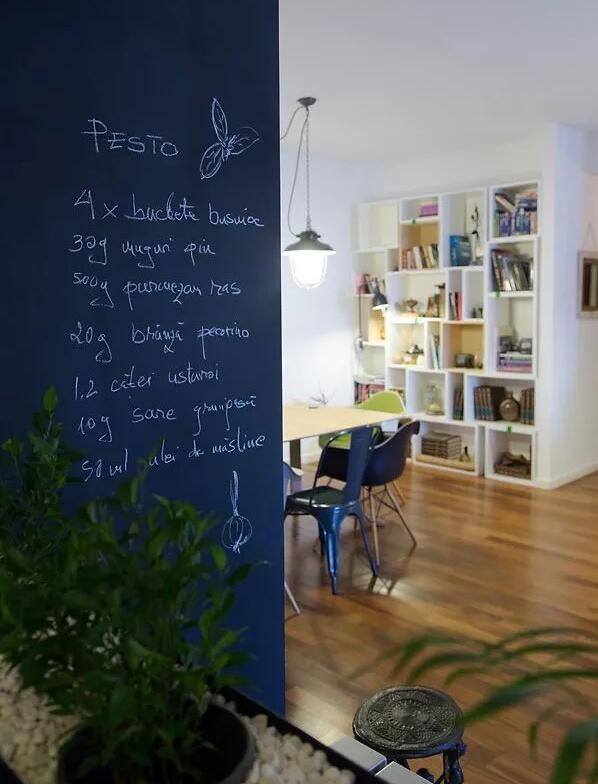 PESTO
4 x buchete busuioc
30g muguri pin
500g parmezan ras
20g brânză pecorino
1,2 căței usturoi
10g sare grunjoasă
50 ml ulei de măsline